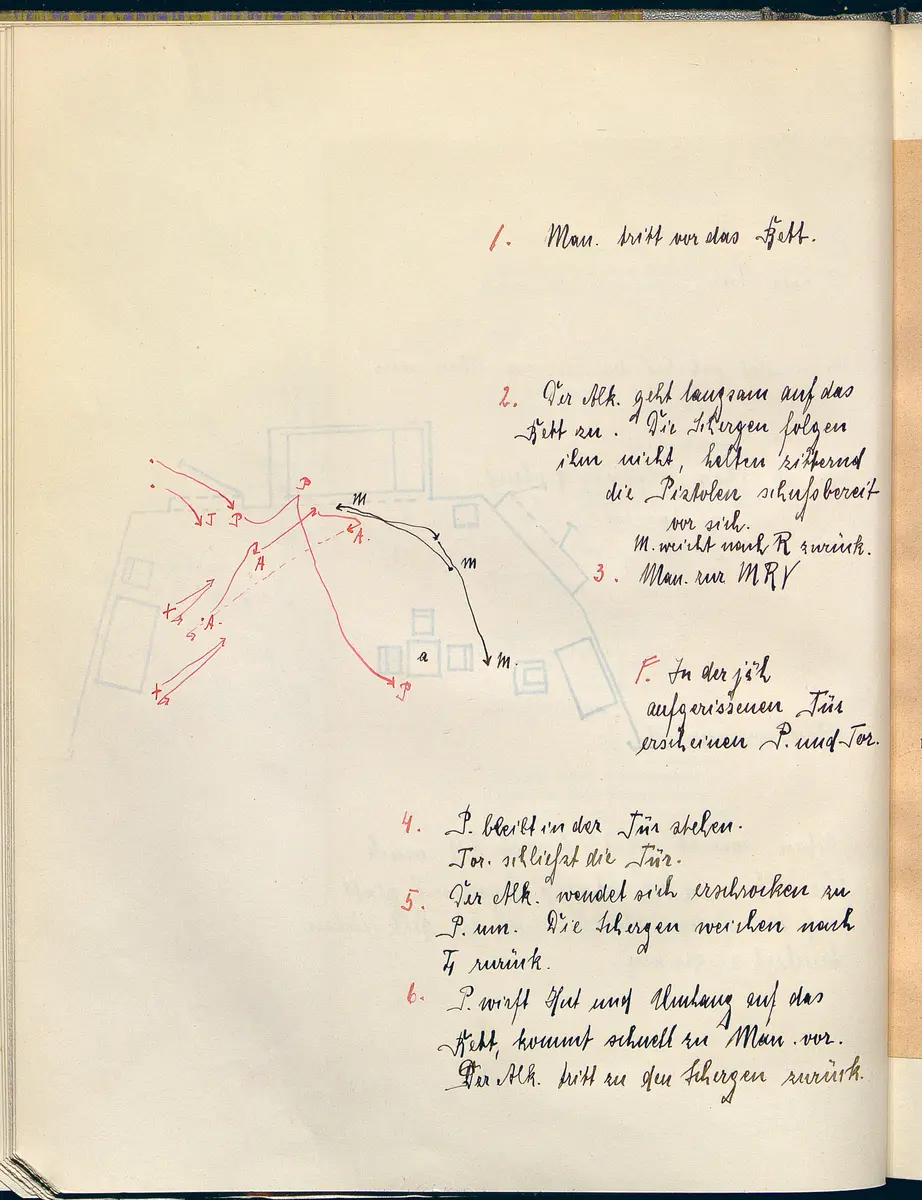 1. Man. tritt vor das Bett.
2. Der Alk. geht langsam auf das
Bett zu. Die Schergen folgen
ihm nicht, halten zitternd
die Pistolen schußbereit
vor sich.
M. weicht nach R zurück.
3. Man. zur MRV
F. In der jäh
aufgerissenen Tür
erscheinen P. und Tor.
P
m
T
P
A.
A
m
A.
a
M.
P
4. P. bleibt in der Tür stehen.
Tor. schließt die Tür.
5. Der Alk. wendet sich erschrocken zu
P. um. Die Schergen weichen nach
zurück.
6. P. wirft Hut und Umhang auf das
Bett, kommt schnell zu Man. vor.
Der Alk. tritt zu den Schergen zurück.